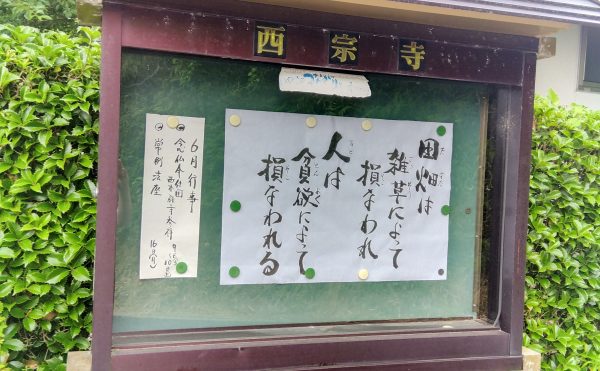 西宗寺
田畑は
雑草によって
損なわれ
人は
貪欲によって
損なわれる
6月行事
念仏奉仕団
常例法座
16日(月)